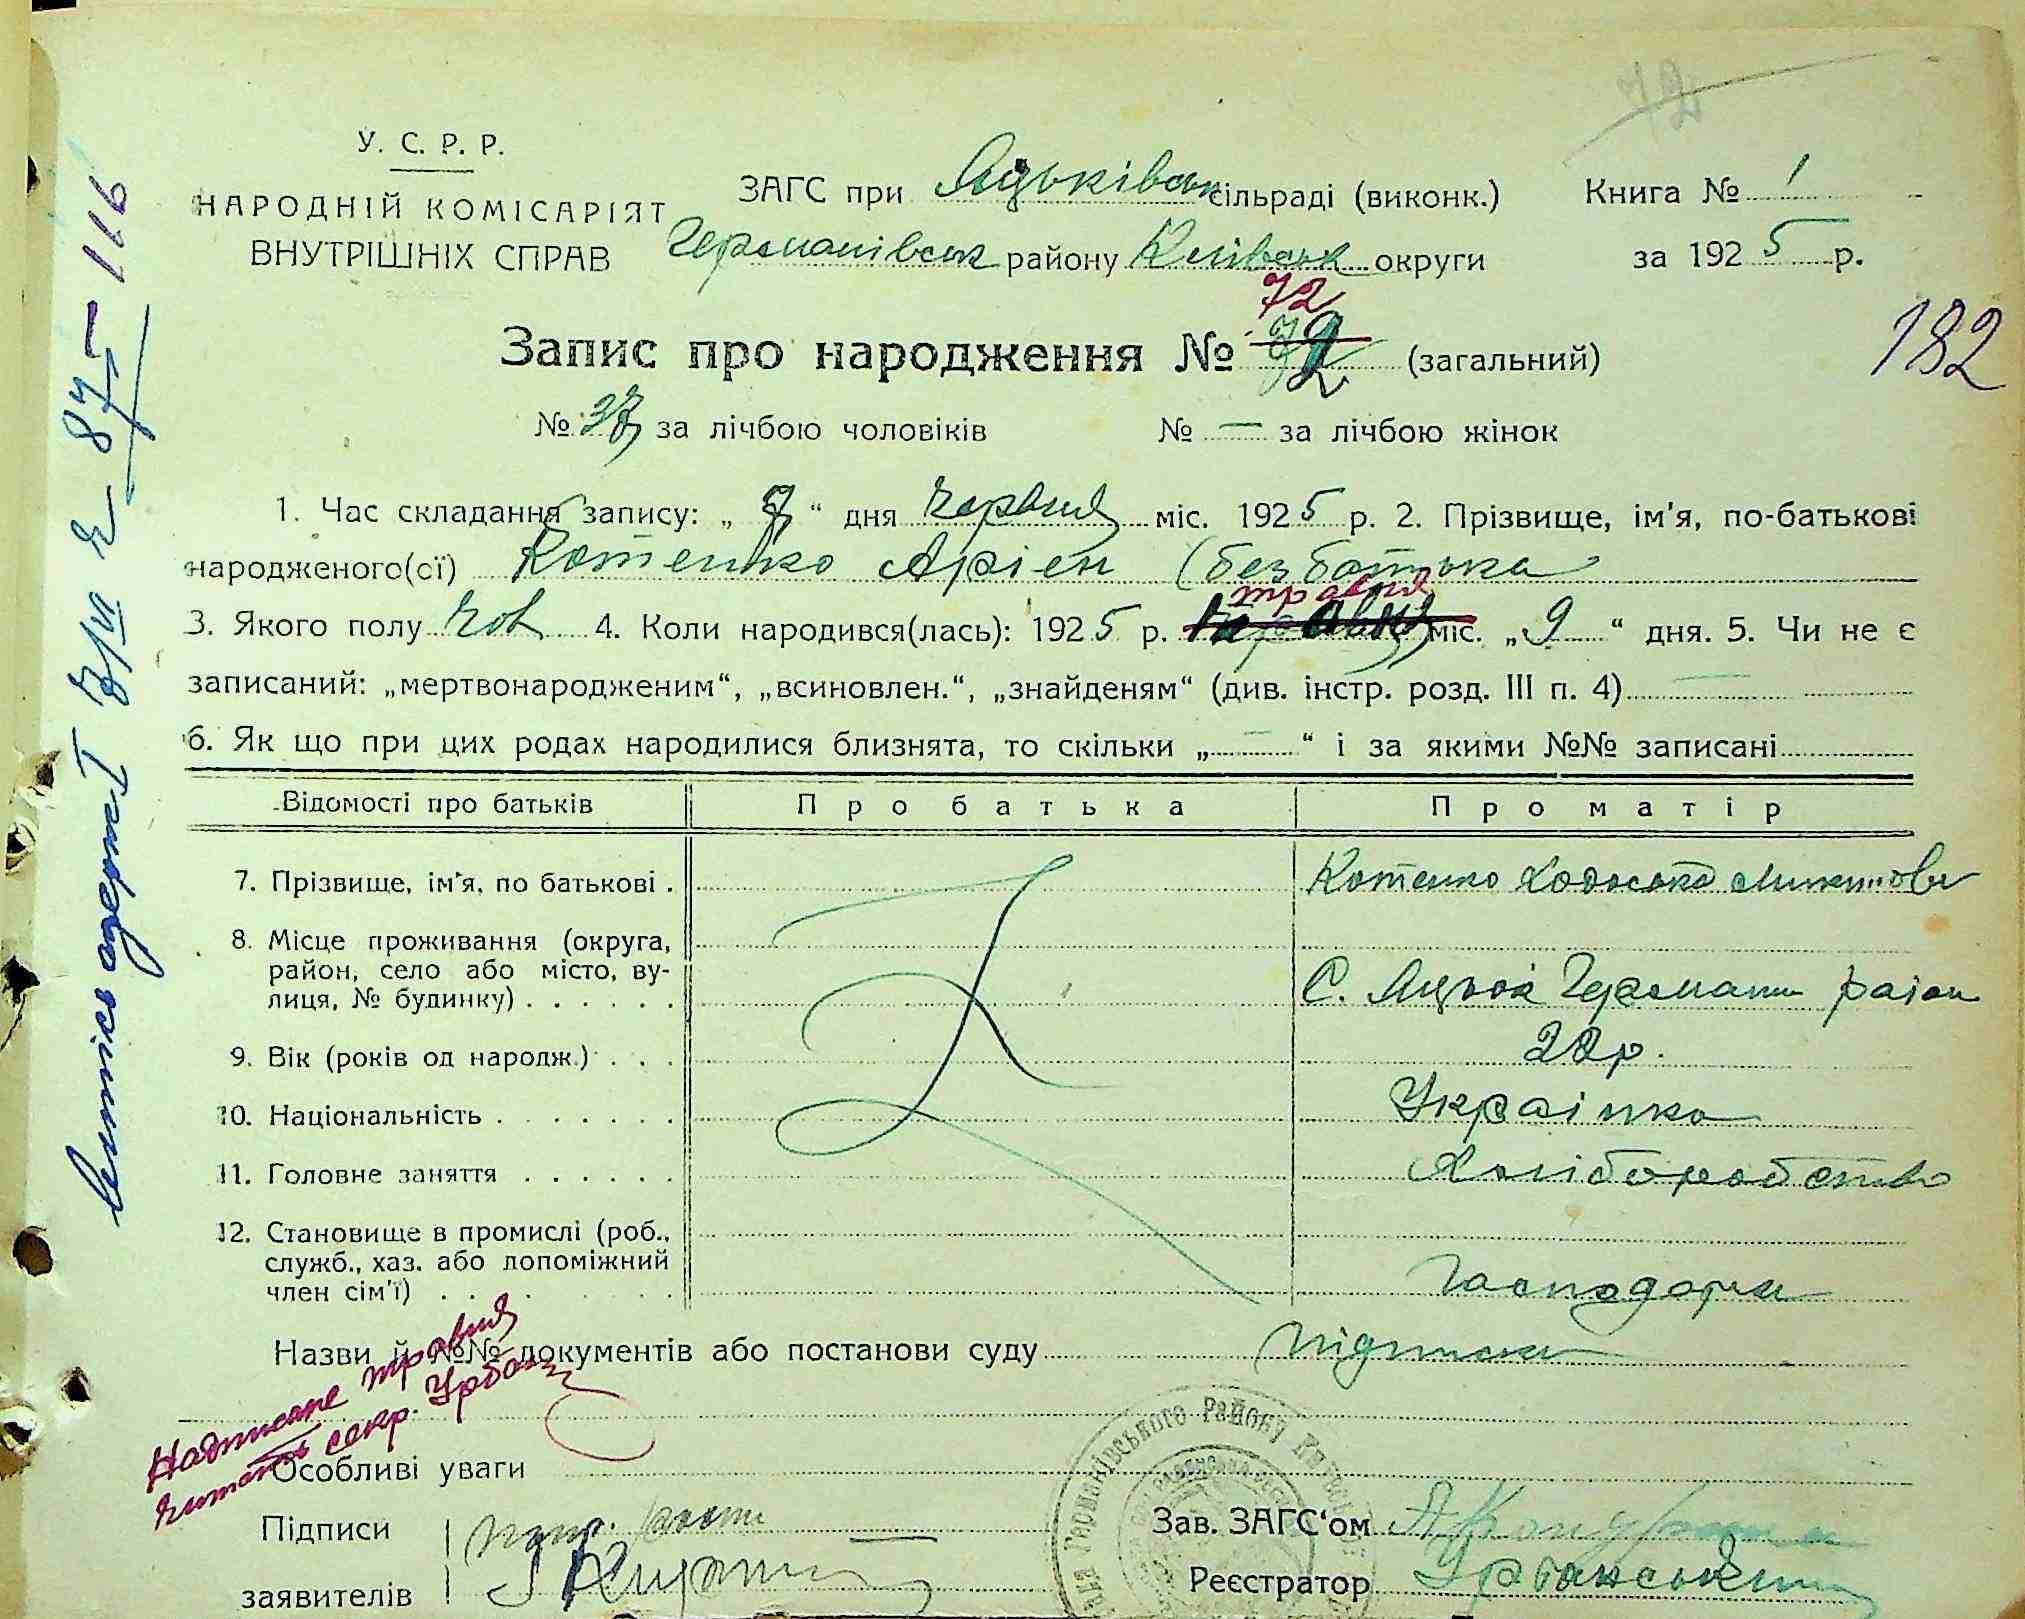 72
У. С. Р. Р.
НАРОДНІЙ КОМІСАРІЯТ
ВНУТРІШНІХ СПРАВ
ЗАГС при Яцьківськ сільраді (виконк.) Книга № 1
Германівськ району Київськ округи за 1925 р.
72
Запис про народження № 72 (загальний)
182
№ 37 за лічбою чоловіків № — за лічбою жінок
1. Час складання запису: „ 7 “ дня червня міс. 1925 р. 2. Прізвище, ім'я, по-батькові
народженого(сї) Котенко Арієн (без батька
травня
3. Якого полу чол 4. Коли народився(лась): 1925 р. міс. „ 9 “ дня. 5. Чи не є
записаний: „мертвонародженим“, „всиновлен.“, „знайденям“ (див. інстр. розд. III п. 4) —
6. Як що при цих родах народилися близнята, то скільки „ — “ і за якими №№ записані
Відомості про батьків Про батька Про матір
7. Прізвище, ім'я, по батькові . Котенко
8. Місце проживання (округа,
район, село або місто, ву-
лиця, № будинку) . . . . . . С. Яцьки Герман район
9. Вік (років од народж.) . . . 22 р.
10. Національність . . . . . . . Украінка
11. Головне заняття . . . . . . Хліборобство
12. Становище в промислі (роб.,
служб., хаз. або допоміжний
член сім'ї) . . . . . . господарка
Назви й №№ документів або постанови суду підписка
Надписане травня
читать секр. Урбан
Особливі уваги
Підписи
заявителів
Зав. ЗАГС'ом
Реєстратор Урбанський
Германівського Району
87 — 116